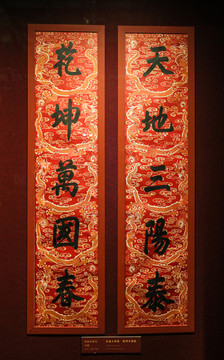 天地三陽泰
花坤萬國春